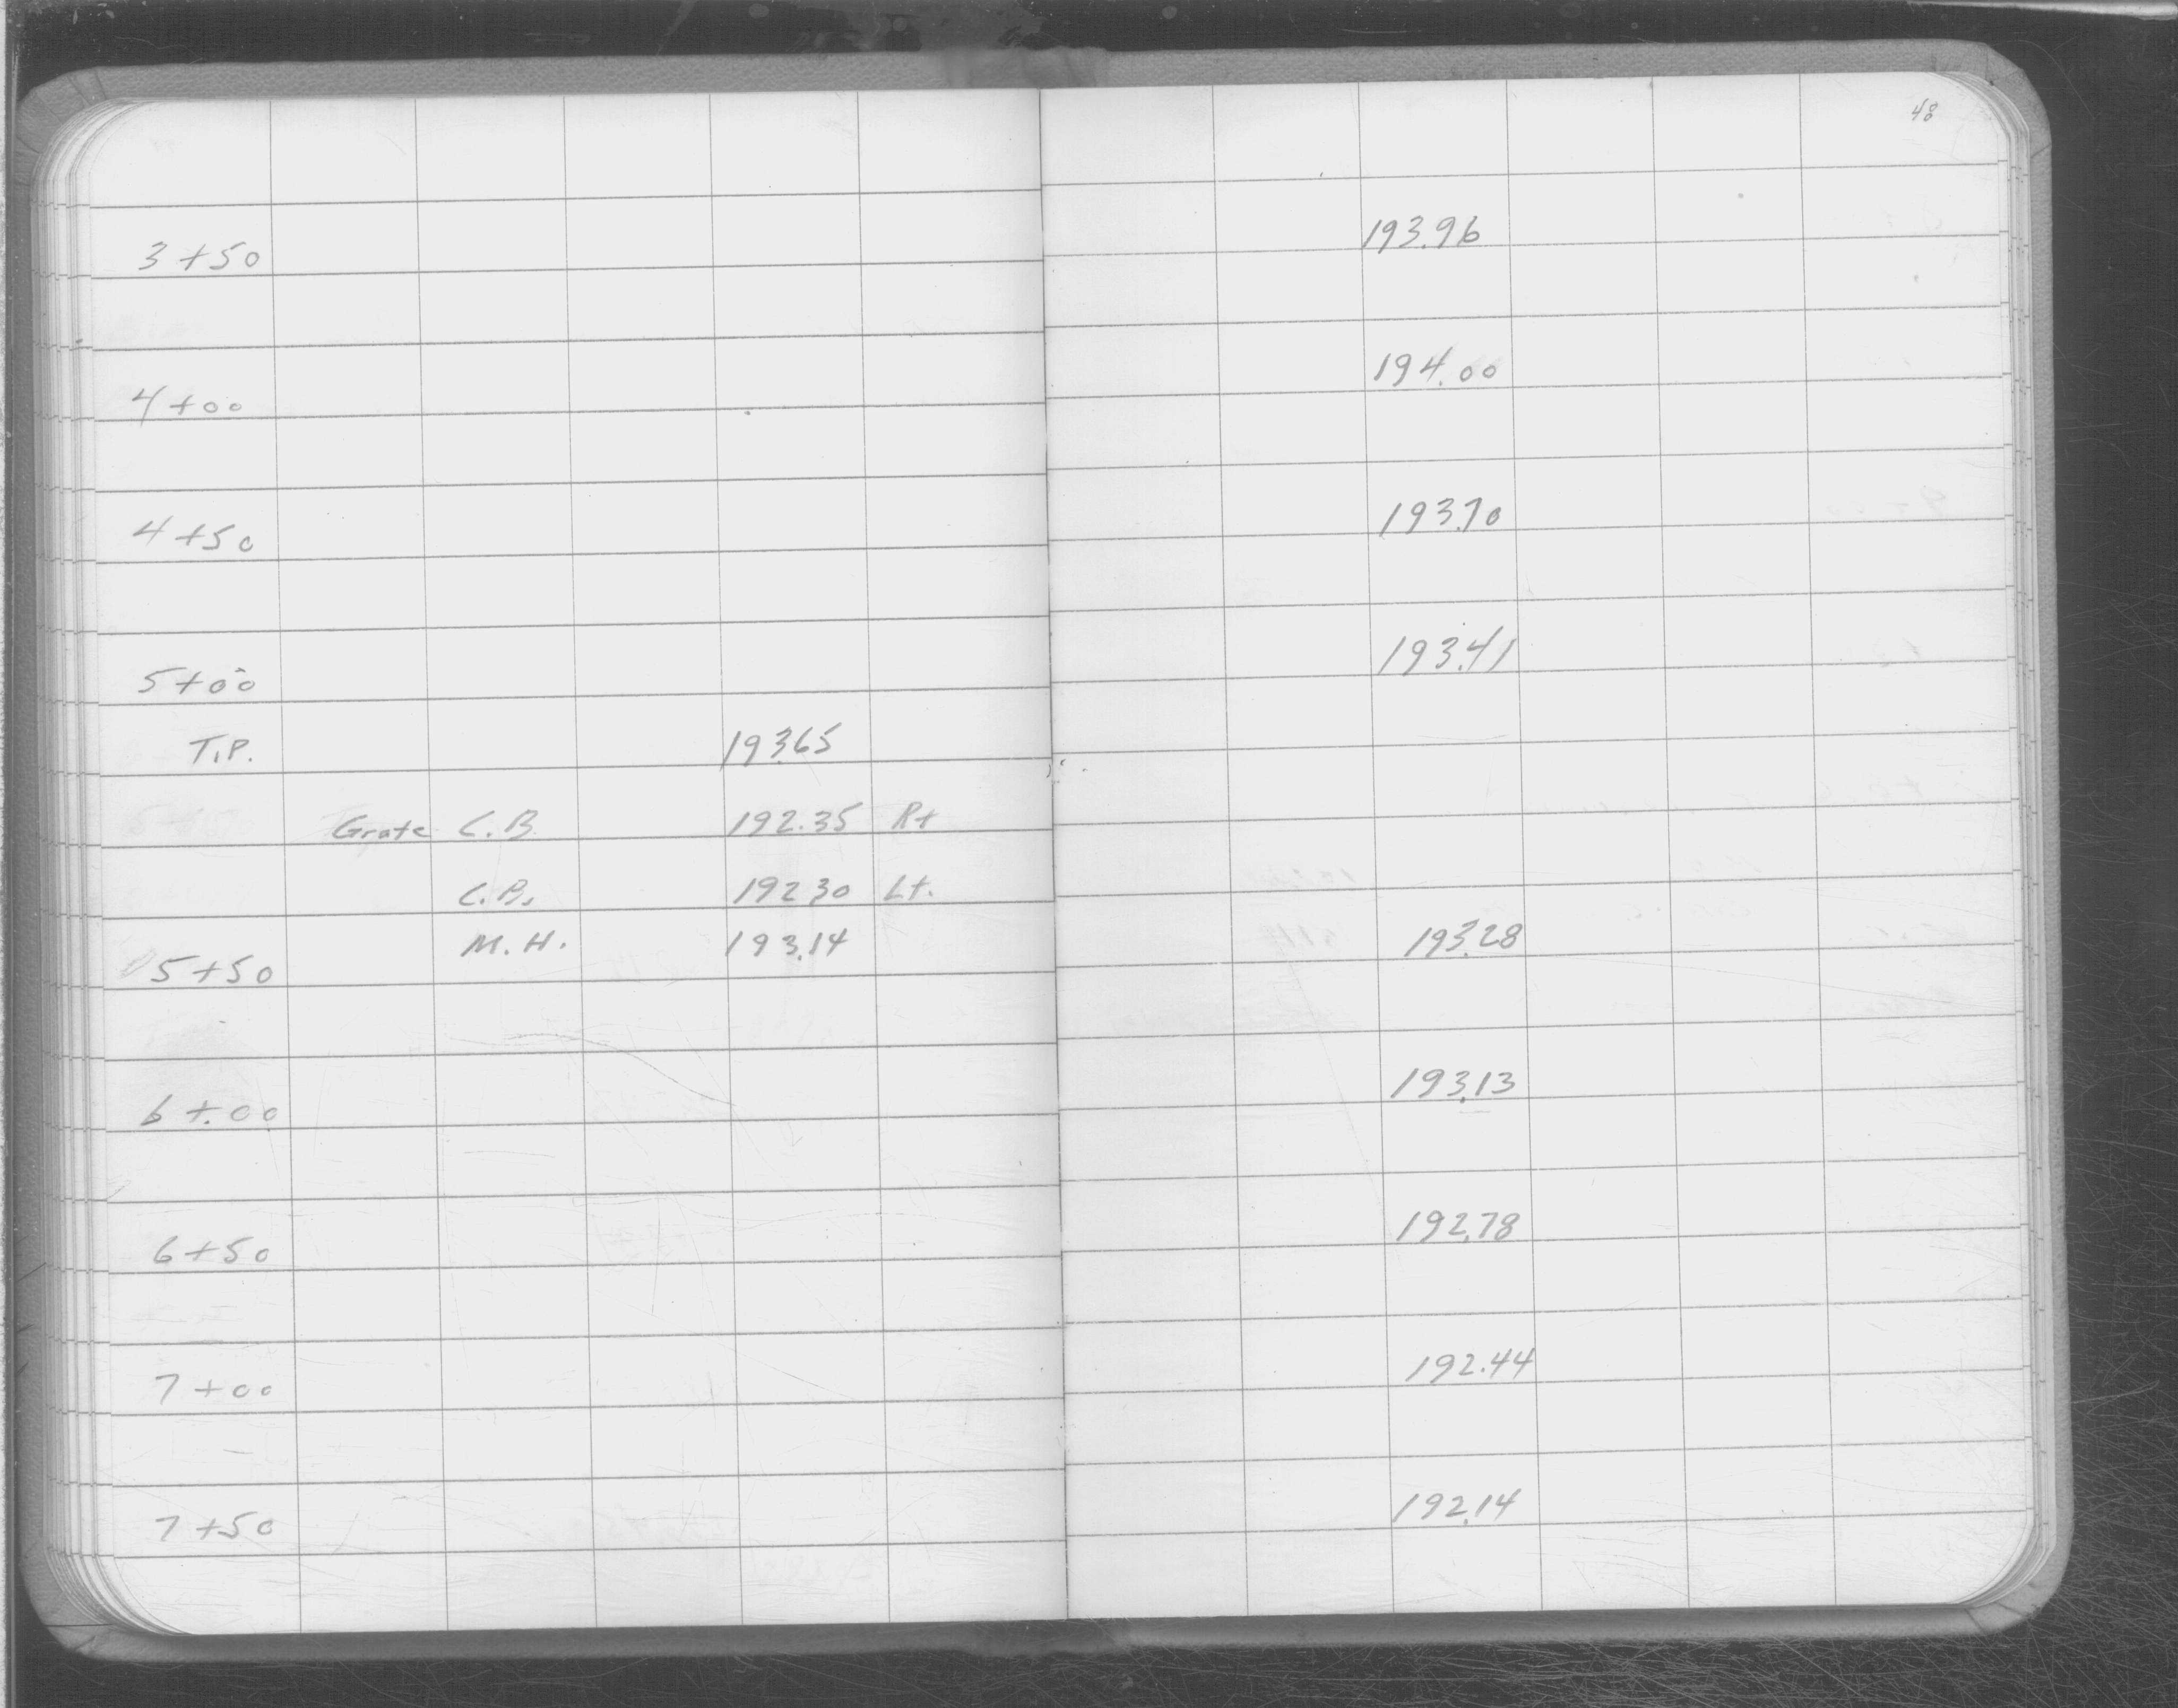 48
3+50 193.96
4+00 194.00
4+50 193.70
5+00 193.41
T.P. 193.65
Grate C.B. 192.35 Rt
C.B. 192.30 Lt.
5+50 M.H. 193.14 193.28
6+00 193.13
6+50 192.78
7+00 192.44
7+50 192.14